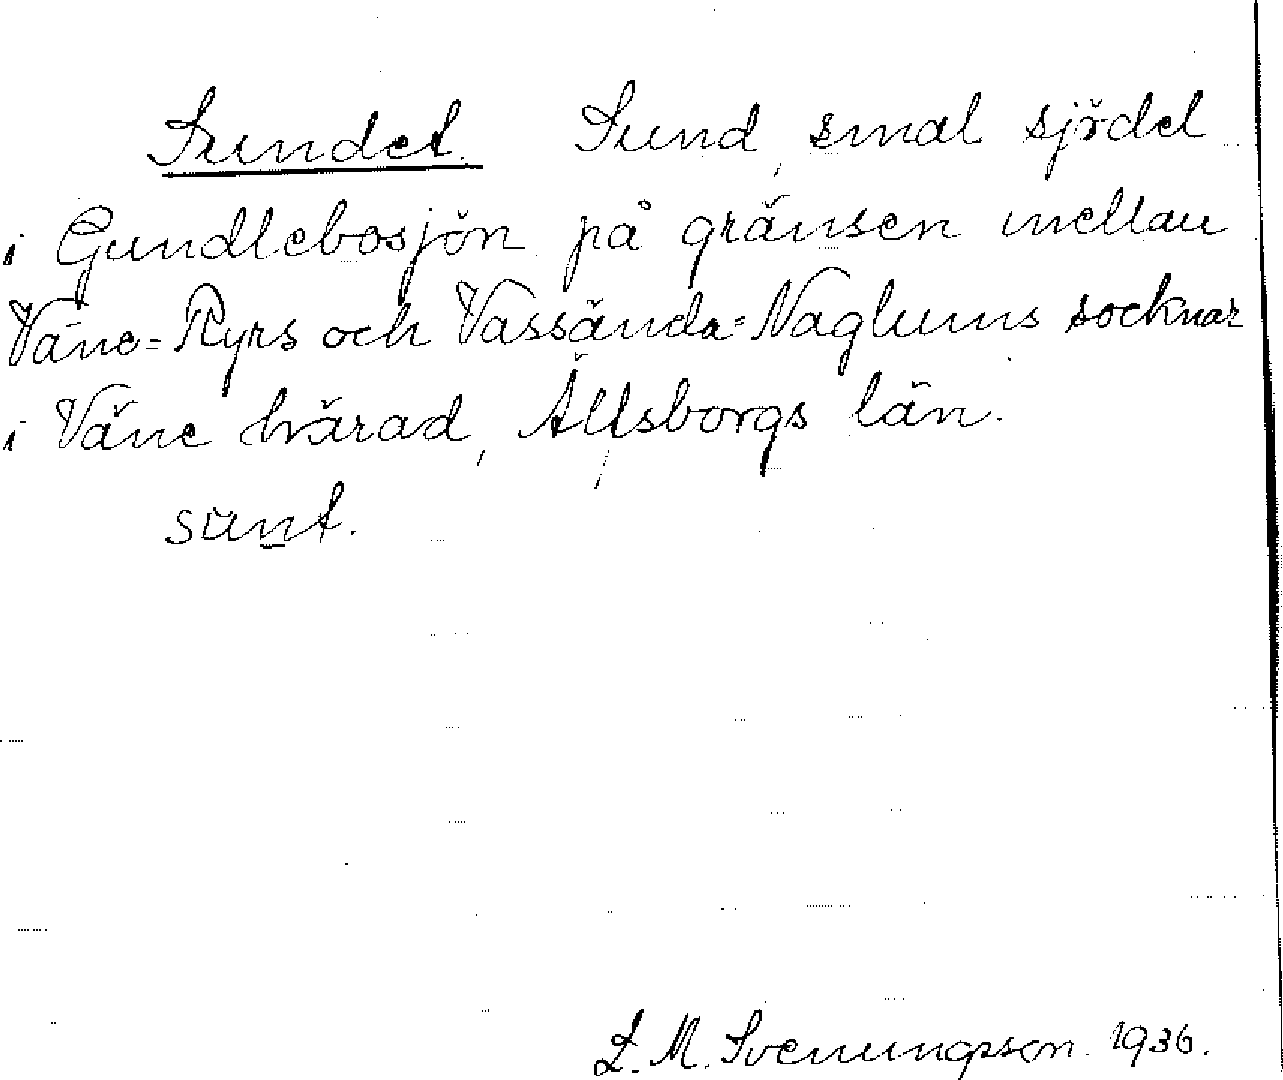 Sundet. Sund, smal sjödel
i Gundlebosjön på gränsen mellan
Väne-Ryrs och Vassända-Naglums socknar
i Väne härad, Älfsborgs län.
sunt.
L. M. Svenungsson. 1936.